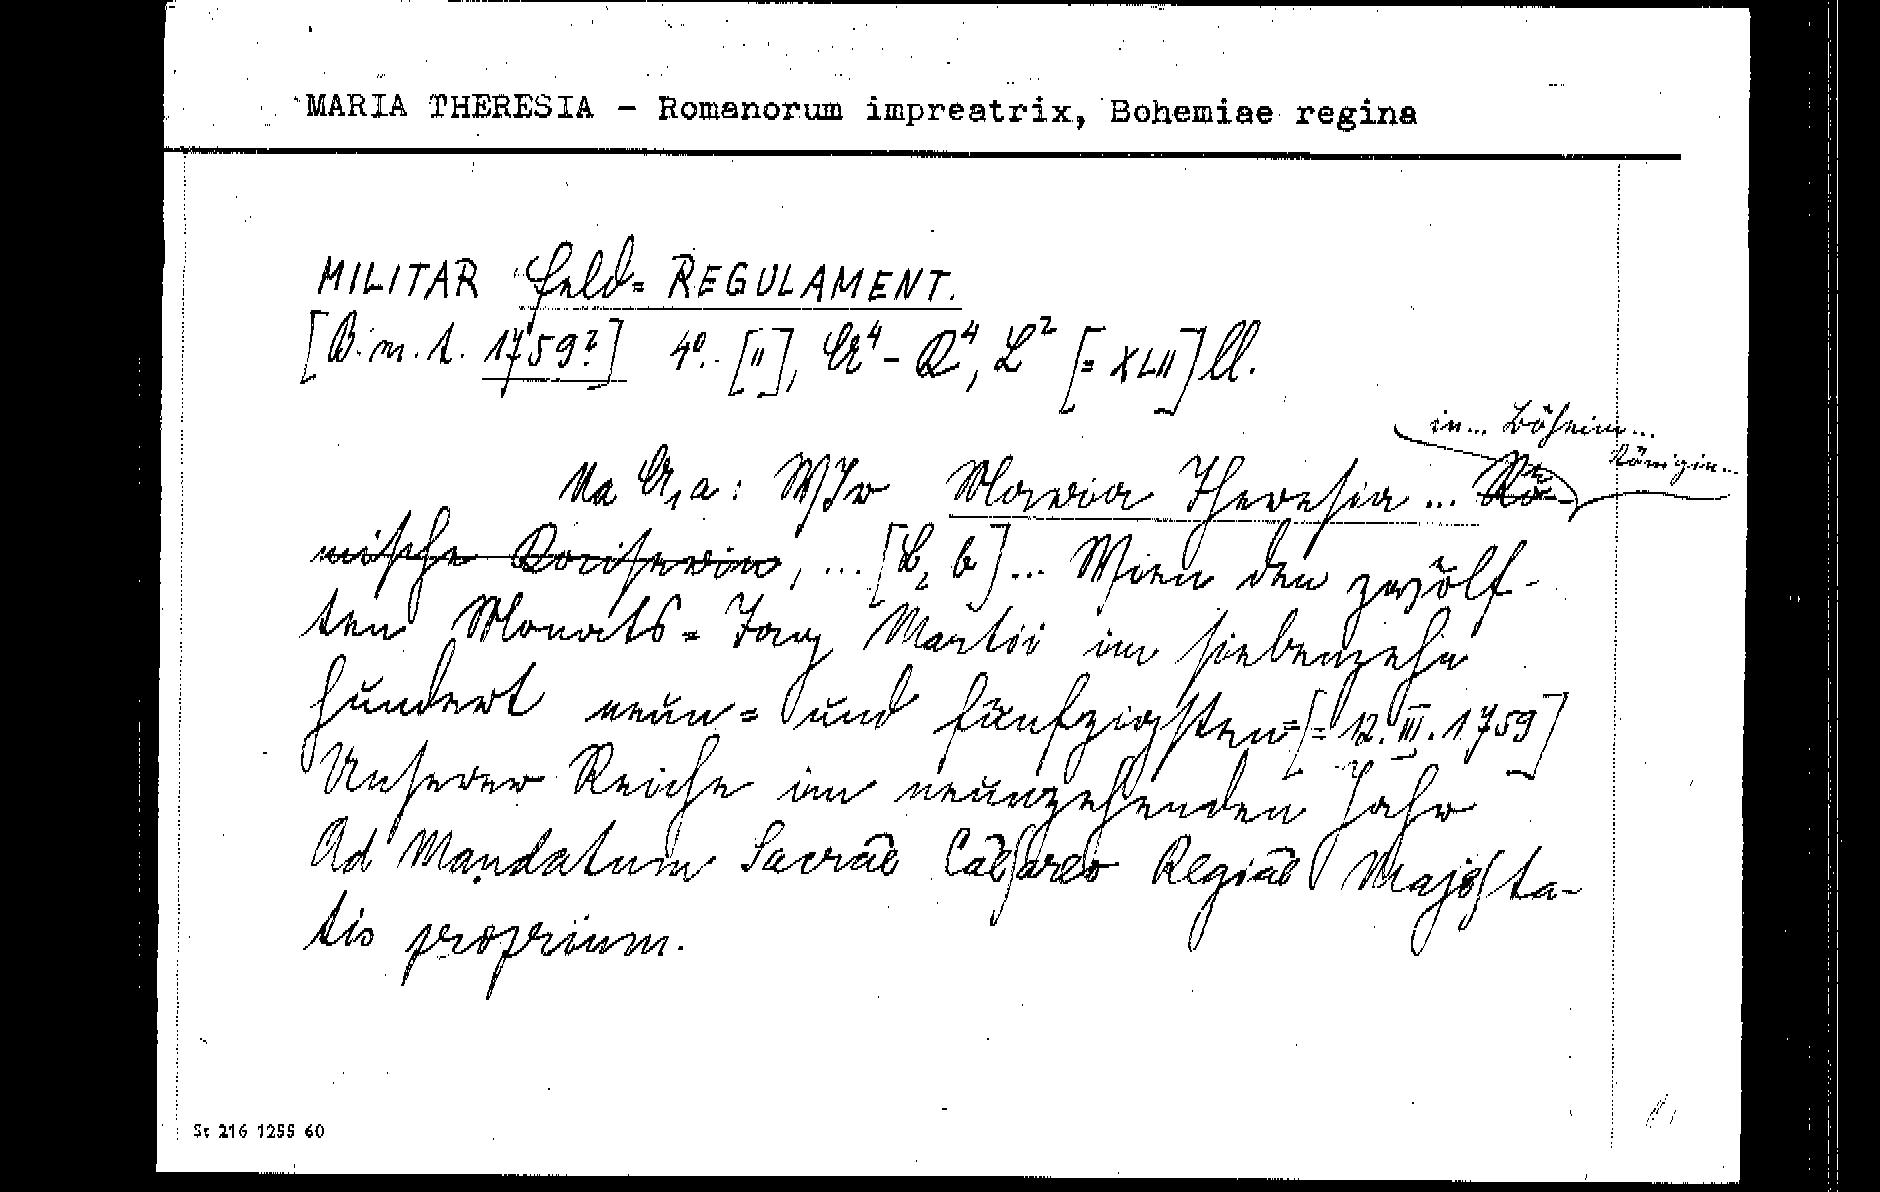 MARIA THERESIA - Romanorum impreatrix, Bohemiae regina
MILITAR Feld= REGULAMENT.
[B.m.t. 1759?] 4º. [II], A⁴- K⁴, L² [= XLII] ll.
in... Böheim...
Königin...
Na A₁a: WIr Maria Theresia ... Rö-
mische Kaiserin, ... [L₂b] ... Wien den zwölf-
ten Monats= Tag Martii im siebenzehn
hundert neun= und fünfzigsten=[= 12. III. 1759]
Unserer Reiche im neunzehenden Jahr
Ad Mandatum Sacrae Caesareo Regiae Majesta-
tis proprium.
St 216 1255 60